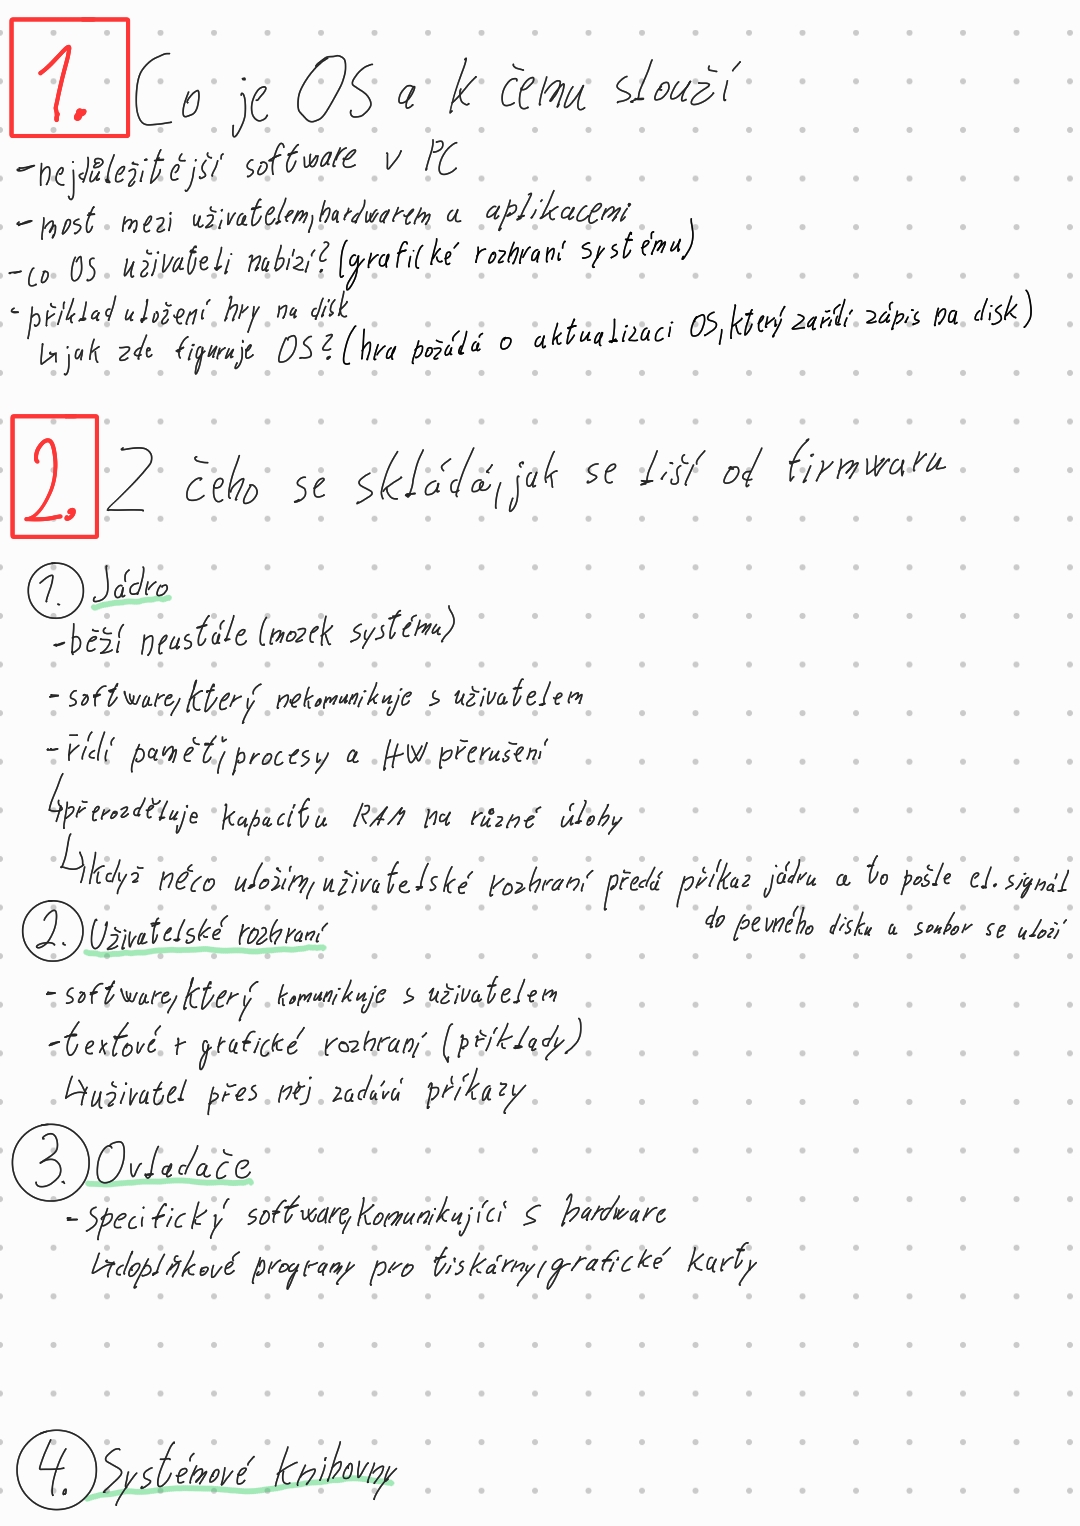 1. Co je OS a k čemu slouží
-nejdůležitější software v PC
-most mezi uživatelem,hardwarem a aplikacemi
-co OS uživateli nabízí?(grafické rozhraní systému)
-příklad uložení hry na disk
↳jak zde figuruje OS?(hra požálá o aktualizaci OS,který zařídí zápis na disk)
2. Z čeho se skládá,jak se liší od firmwaru
1. Jádro
-běží neustále(mozek systému)
-software,který nekomunikuje s uživatelem
-řídí paměť,procesy a HW přerušení
↳přerozděluje kapacitu RAM na různé úlohy
↳když něco uložím,uživatelské rozhraní předá příkaz jádru a to pošle el.signál
do pevného disku a soubor se uloží
2. Uživatelské rozhraní
-software,který komunikuje s uživatelem
-textové + grafické rozhraní (příklady)
↳uživatel přes něj zadává příkazy
3. Ovladače
-specifický software,komunikující s hardware
↳doplňkové programy pro tiskárny,grafické karty
4. Systémové knihovny